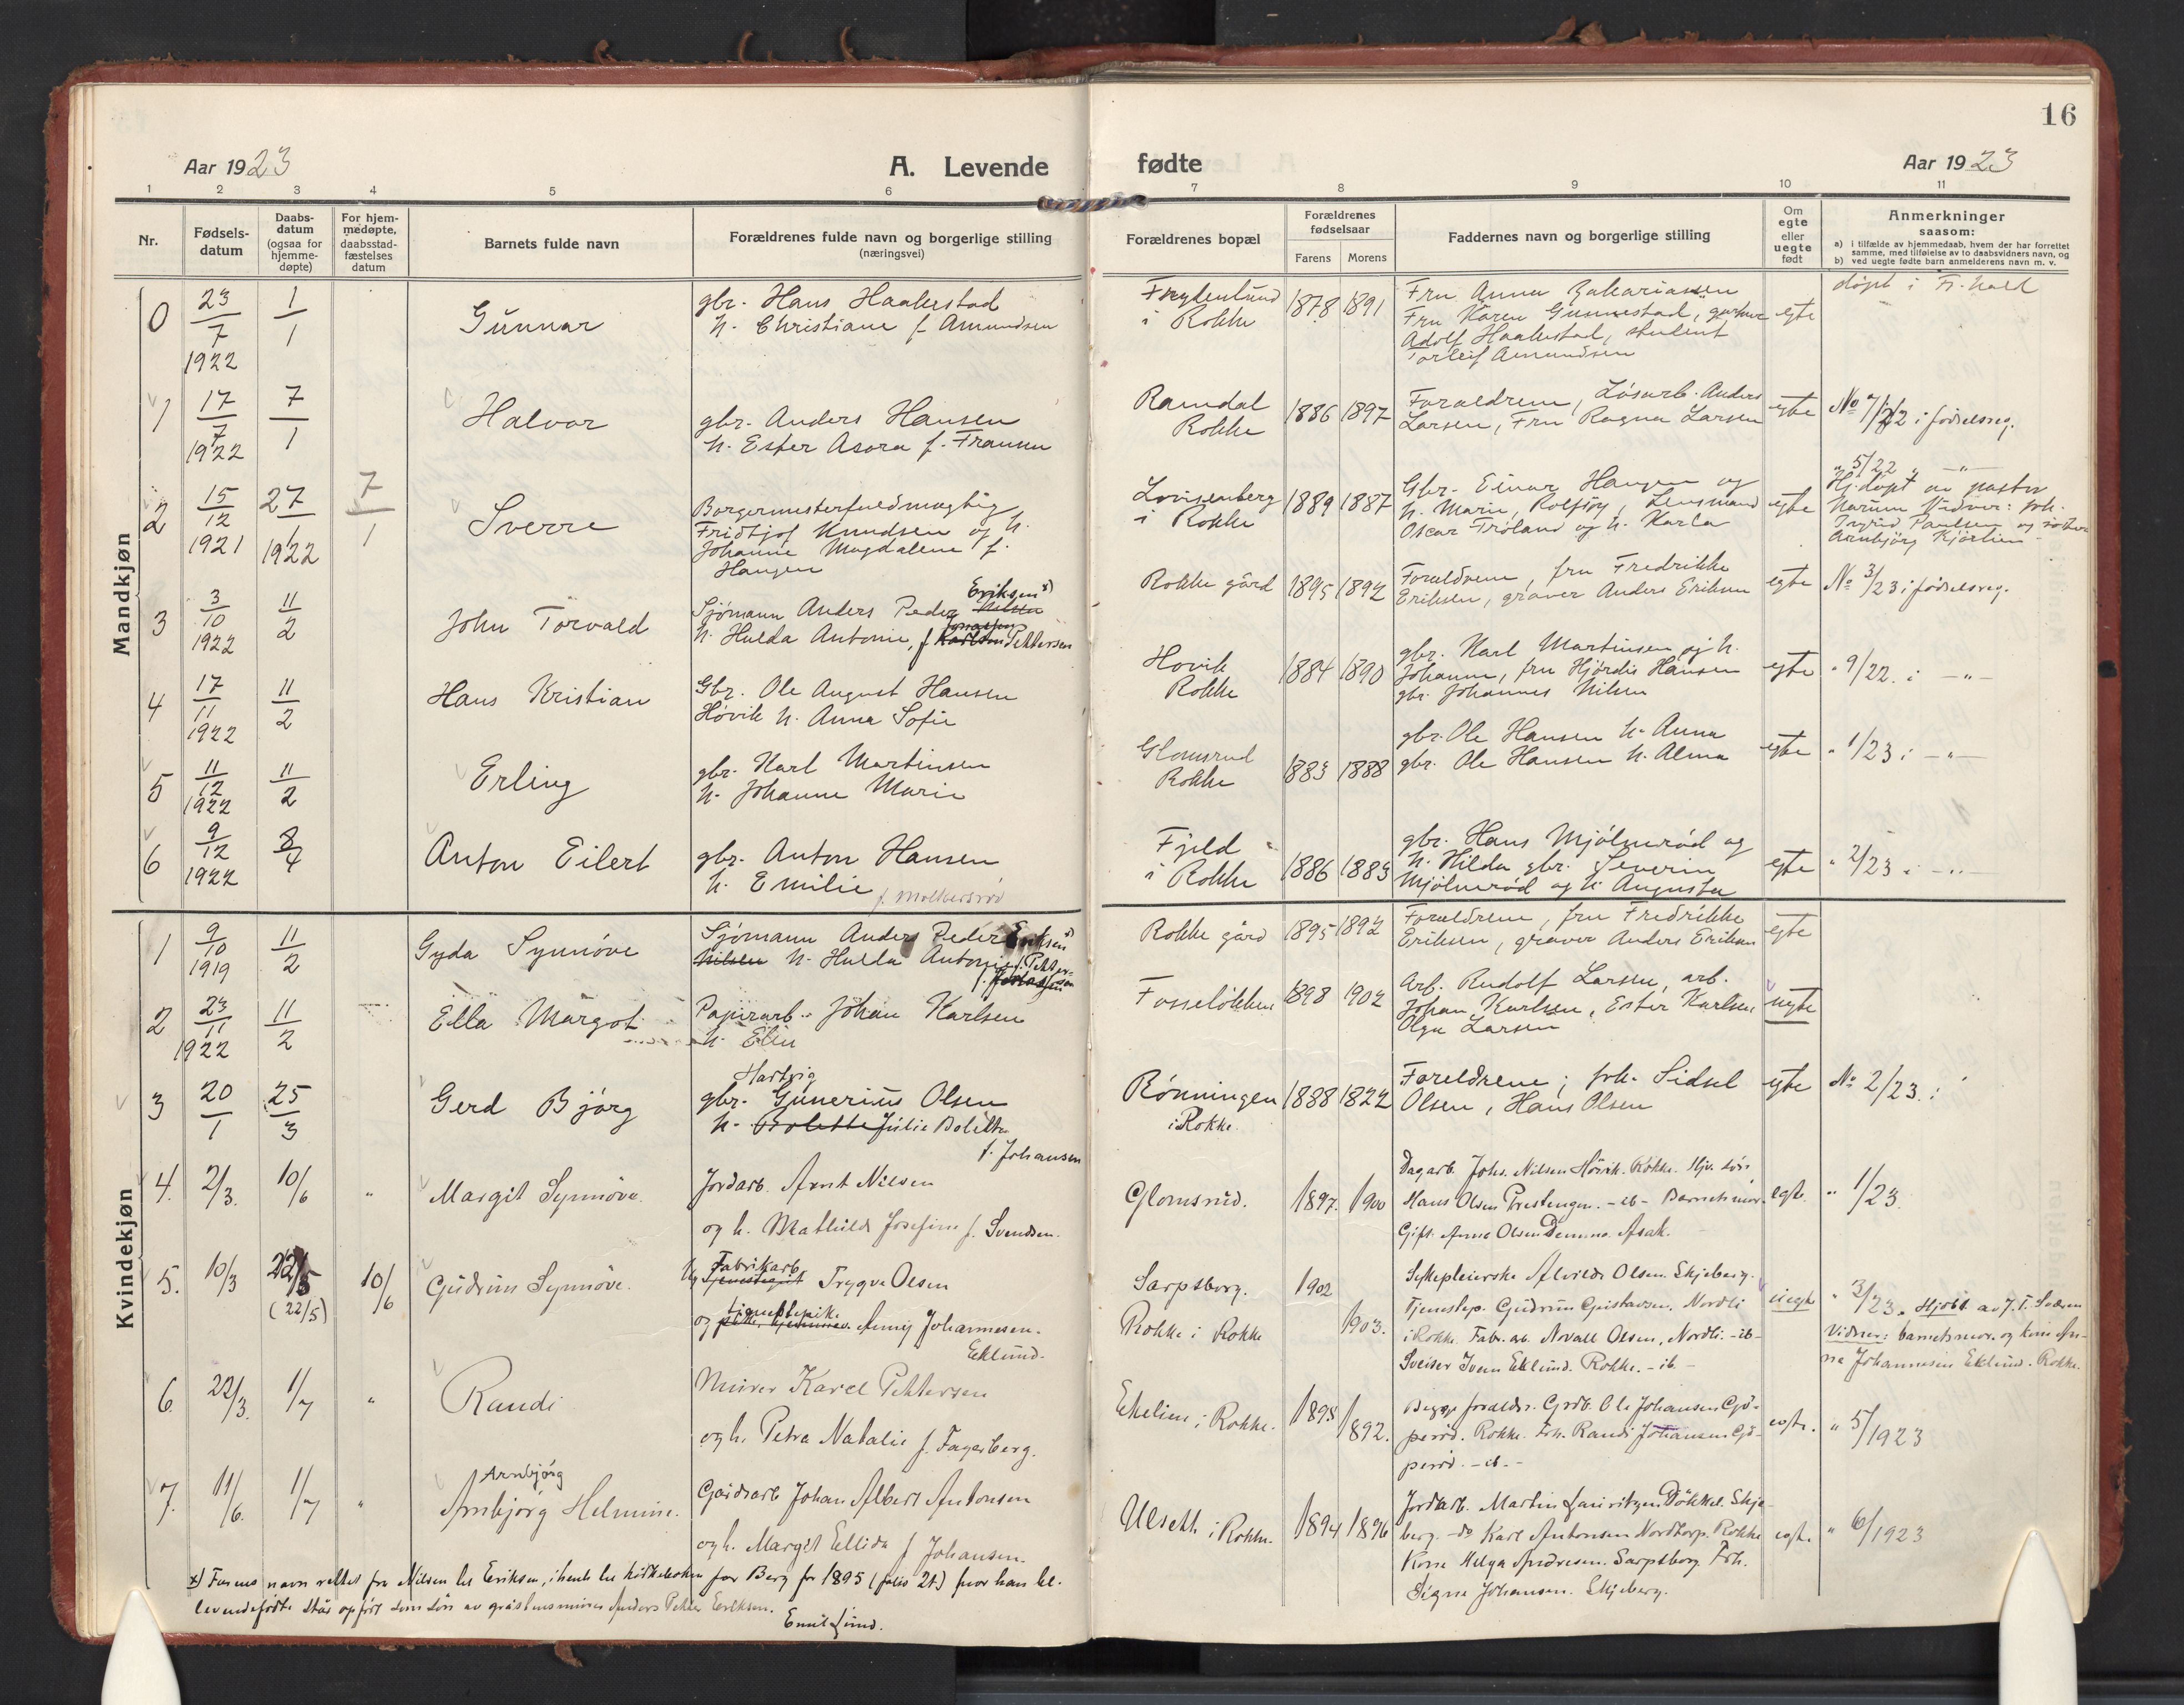 16
Aar 1923
A. Levende fødte
Aar 1923
1 2 3 4 5 6 7 8 9 10 11
Nr.
Fødsels-datum
Daabs-datum (ogsaa for hjemme-døpte)
For hjem-medøpte, daabsstad-fæstelses datum
Barnets fulde navn
Forældrenes fulde navn og borgerlige stilling (næringsvei)
Forældrenes bopæl
Forældrenes fødselsaar
Farens Morens
Faddernes navn og borgerlige stilling
Om egte eller uegte født
Anmerkninger saasom:
a) i tilfælde av hjemmedaab, hvem der har forrettet samme, med tilføielse av to daabsvidners navn, og
b) ved uegte fødte barn anmelderens navn m. v.
Mandkjøn
0 23/7 1922 1/1 Gunnar
gbr. Hans Haakestad
h. Christiane f. Amundsen
Frydenlund i Rokke 1878 1891
Fru Anna Zakariassen
Fru Karen Gunnestad,
Adolf Haakestad, student
Torleif Amundsen
egte
døpt i Fr.hald
1 17/7 1922 7/1 Halvor
gbr. Anders Hansen
h. Ester Asora f. Fransen
Ramdal Rokke 1886 1897
Foraeldrene, Løsarb. Anders
Larsen, Fru Ragna Larsen
egte
No 7/22 i fødselsreg.
2 15/12 1921 27/1 1922 7/1 Sverre
Borgermesterfuldmægtig
Fridtjof Knudsen og h.
Johanne Magdalene f.
Haugen
Lovisenberg i Rokke 1889 1887
Gbr. Einar Haugen og
h. Marie, Rolfsøy, Lensmand
Oscar Trøland og h. Karla
egte
" 5/22 " — " —
Hj.døpt av pastor
Narum Vidner: frk.
Ingrid Paulsen og søster
Arnbjørg Kjørlien
3 3/10 1922 11/2 John Torvald
Eriksen x)
Sjømann Anders Peder Nilsen
h. Hulda Antonie, f. Karlsen Pettersen
Rokke gård 1895 1892
Foraeldrene, fru Fredrikke
Eriksen, graver Anders Eriksen
egte
No 3/23 i fødselsreg.
4 17/11 1922 11/2 Hans Kristian
Gbr. Ole August Hansen
Høvik h. Anna Sofie
Hovik Rokke 1884 1890
gbr. Karl Martinsen og h.
Johanne, fru Hjørdis Hansen
gbr. Johannes Nilsen
egte
" 9/22 i — " —
5 11/12 1922 11/2 Erling
gbr. Karl Martinsen
h. Johanne Marie
Glomsrud Rokke 1883 1888
gbr. Ole Hansen h. Anna
gbr. Ole Hansen h. Alma
egte
" 1/23 i — " —
6 9/12 1922 8/4 Anton Eilert
gbr. Anton Hansen
h. Emilie
Fjeld i Rokke 1886 1883
gbr. Hans Mjølnerød og
h. Hilda gbr. Severin
Mjølnerød og h. Augusta
egte
" 2/23 i — " —
Kvindekjøn
1 9/10 1919 11/2 Gyda Synnöve
Sjømann Anders Peder Eriksen x)
Nilsen h. Hulda Antonie f. Pettersen
Rokke gård 1895 1892
Foraeldrene, fru Fredrikke
Eriksen, graver Anders Eriksen
egte
2 23/11 1922 11/2 Ella Margot
Papirarb. Johan Karlsen
h. Elin
Fosseløkken 1898 1902
Arb. Rudolf Larsen, arb.
Johan Karlsen, Ester Karlsen
Olga Larsen
uegte
3 20/1 25/3 Gerd Bjørg
Hartvig
gbr. Gunerius Olsen
h. Bolette Julie Bolette
f. Johansen
Rønningen i Rokke. 1888 1822
Foreldrene; frk. Sidsel
Olsen, Hans Olsen
egte
No 2/23 i
4. 2/3. 10/6 " Margit Synnøve.
Jordarb. Arnt Nilsen
og h. Mathilde Josefine f. Svendsen.
Glomsrud. 1897. 1900
Dagarb. Johs. Nilsen Høvik. Rokke.
Hans Olsen Prestengen. - ib - Barnets mor.
Gift. Anna Olsen Asak.
egte.
" 1/23.
5. 10/3 22/5 (22/5) 10/6 Gudrun Synnøve.
Fabrikarb.
Trygve Olsen
og Anny Johannesen.
Eklund.
Sarpsborg. 1902
Rokke i Rokke 1903.
Sykepleierske Alvilde Olsen. Skjeberg.
Tjenestep. Gudrun Gustavsen. Nordli
i Rokke. Fab. arb. Norall Olsen, Nordli. - ib -
Sveiser Sven Eklund. Rokke. - ib -
uegte
" 3/23. Hjdbt. av J. T. Solgren
Vidner: barnets mor. og kone An-
na Johannesen Eklund. Rokke.
6. 22/3. 1/7 " Randi
Murer Karel Pettersen
og h. Petra Natalie f. Fagerberg.
Ekelien i Rokke. 1895 1892.
Begge foraeldr. Grdb. Ole Johansen Gjø-
perød. Rokke. Frk. Randi Johansen Gjø-
perød. - ib. -
egte.
" 5/1923
7. 11/6. 1/7 " Arnbjørg
Arnbjørg Helmine.
Gaardsarb Johan Albert Antonsen
og h. Margit Ellida f. Johansen.
Ulseth i Rokke. 1894 1896
Jordarb. Martin Lauritzen Døkkel. Skje-
berg. - do Karl Antonsen Nordtorp. Rokke
Kone Helga Andresen. Sarpsborg. Frk.
Signe Johansen. Skjeberg.
egte.
" 6/1923
x) Farens navn rettet fra Nilsen til Eriksen, ihenh. til kirkeboken for Berg for 1895 (folio 21) hvor han bl.
levendefødte står opført som søn av gråstensminer Anders Petter Eriksen.
Emil Lund.